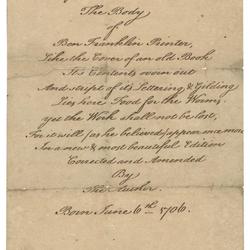 The Body
of
Ben Franklin Printer,
Like the Cover of an old Book
Its Contents worn out
And stript of its Lettering & Gilding
Lies here Food for the Worms,
yet the Work shall not be lost,
For it will (as he believed) appear once more
In a new & most beautiful Edition
Corrected and Amended
By
The Author.
Born June 6th 1706.